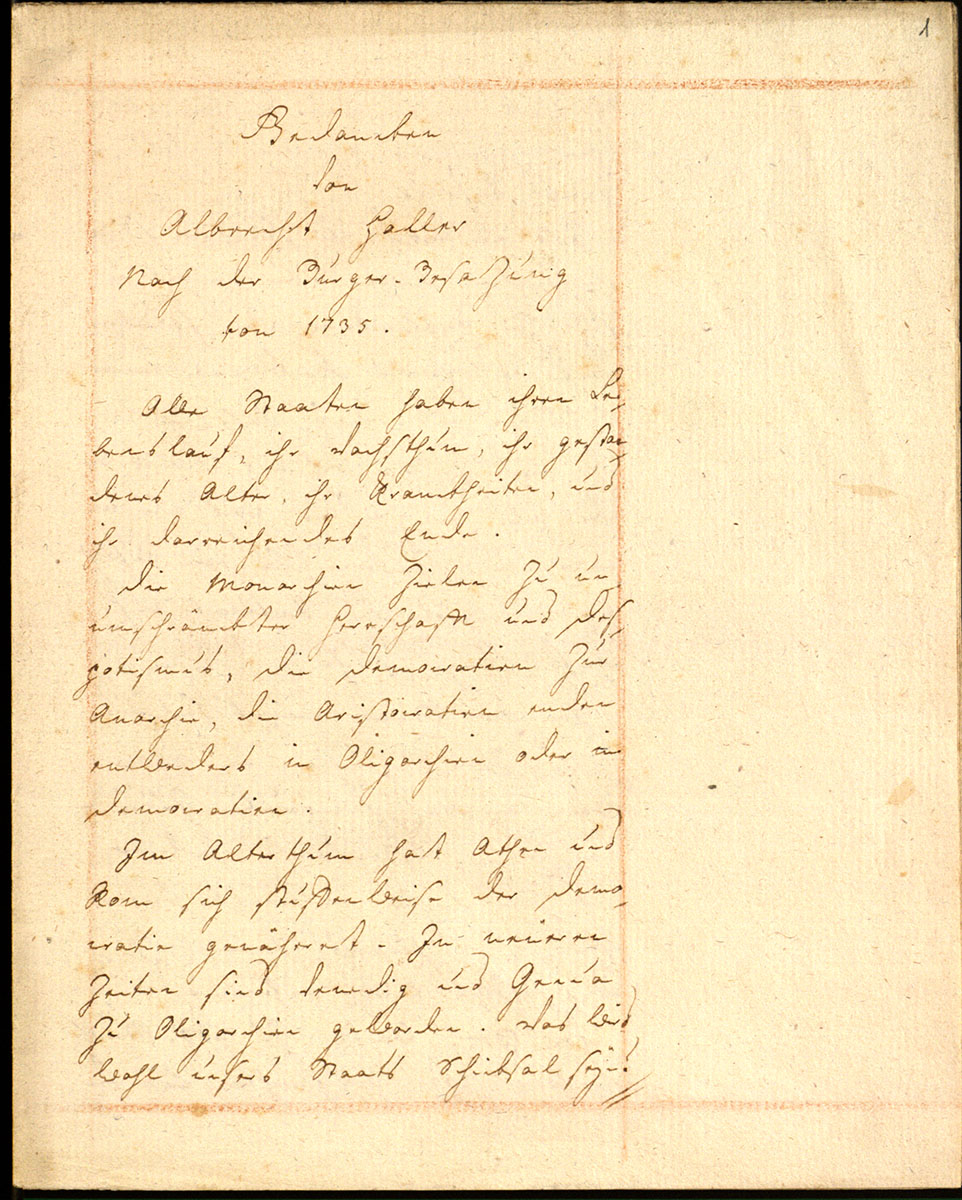 1
Gedancken
von
Albrecht Haller
Nach der Burger-Besatzung
von 1735.
Alle Staaten haben ihren Le-
benslauf, ihr Wachsthum, ihr gestan-
denes Alter, ihr Kranckheiten, und
ihr darreichendes Ende.
Die Monarchien Zielen Zu un
umschränckter Herrschafft und Des-
potismus, die Democratien Zur
Anarchie, die Aristocratien enden
entweders in Oligarchien oder in
Democratien.
Im Alterthum hat Athen und
Rom sich stuffenweise der Demo-
cratie genäheret. In neüeren
Zeiten sind Venedig und Genua
Zu Oligarchien geworden. Was wird
wohl unsers Staats Schicksal seÿn?